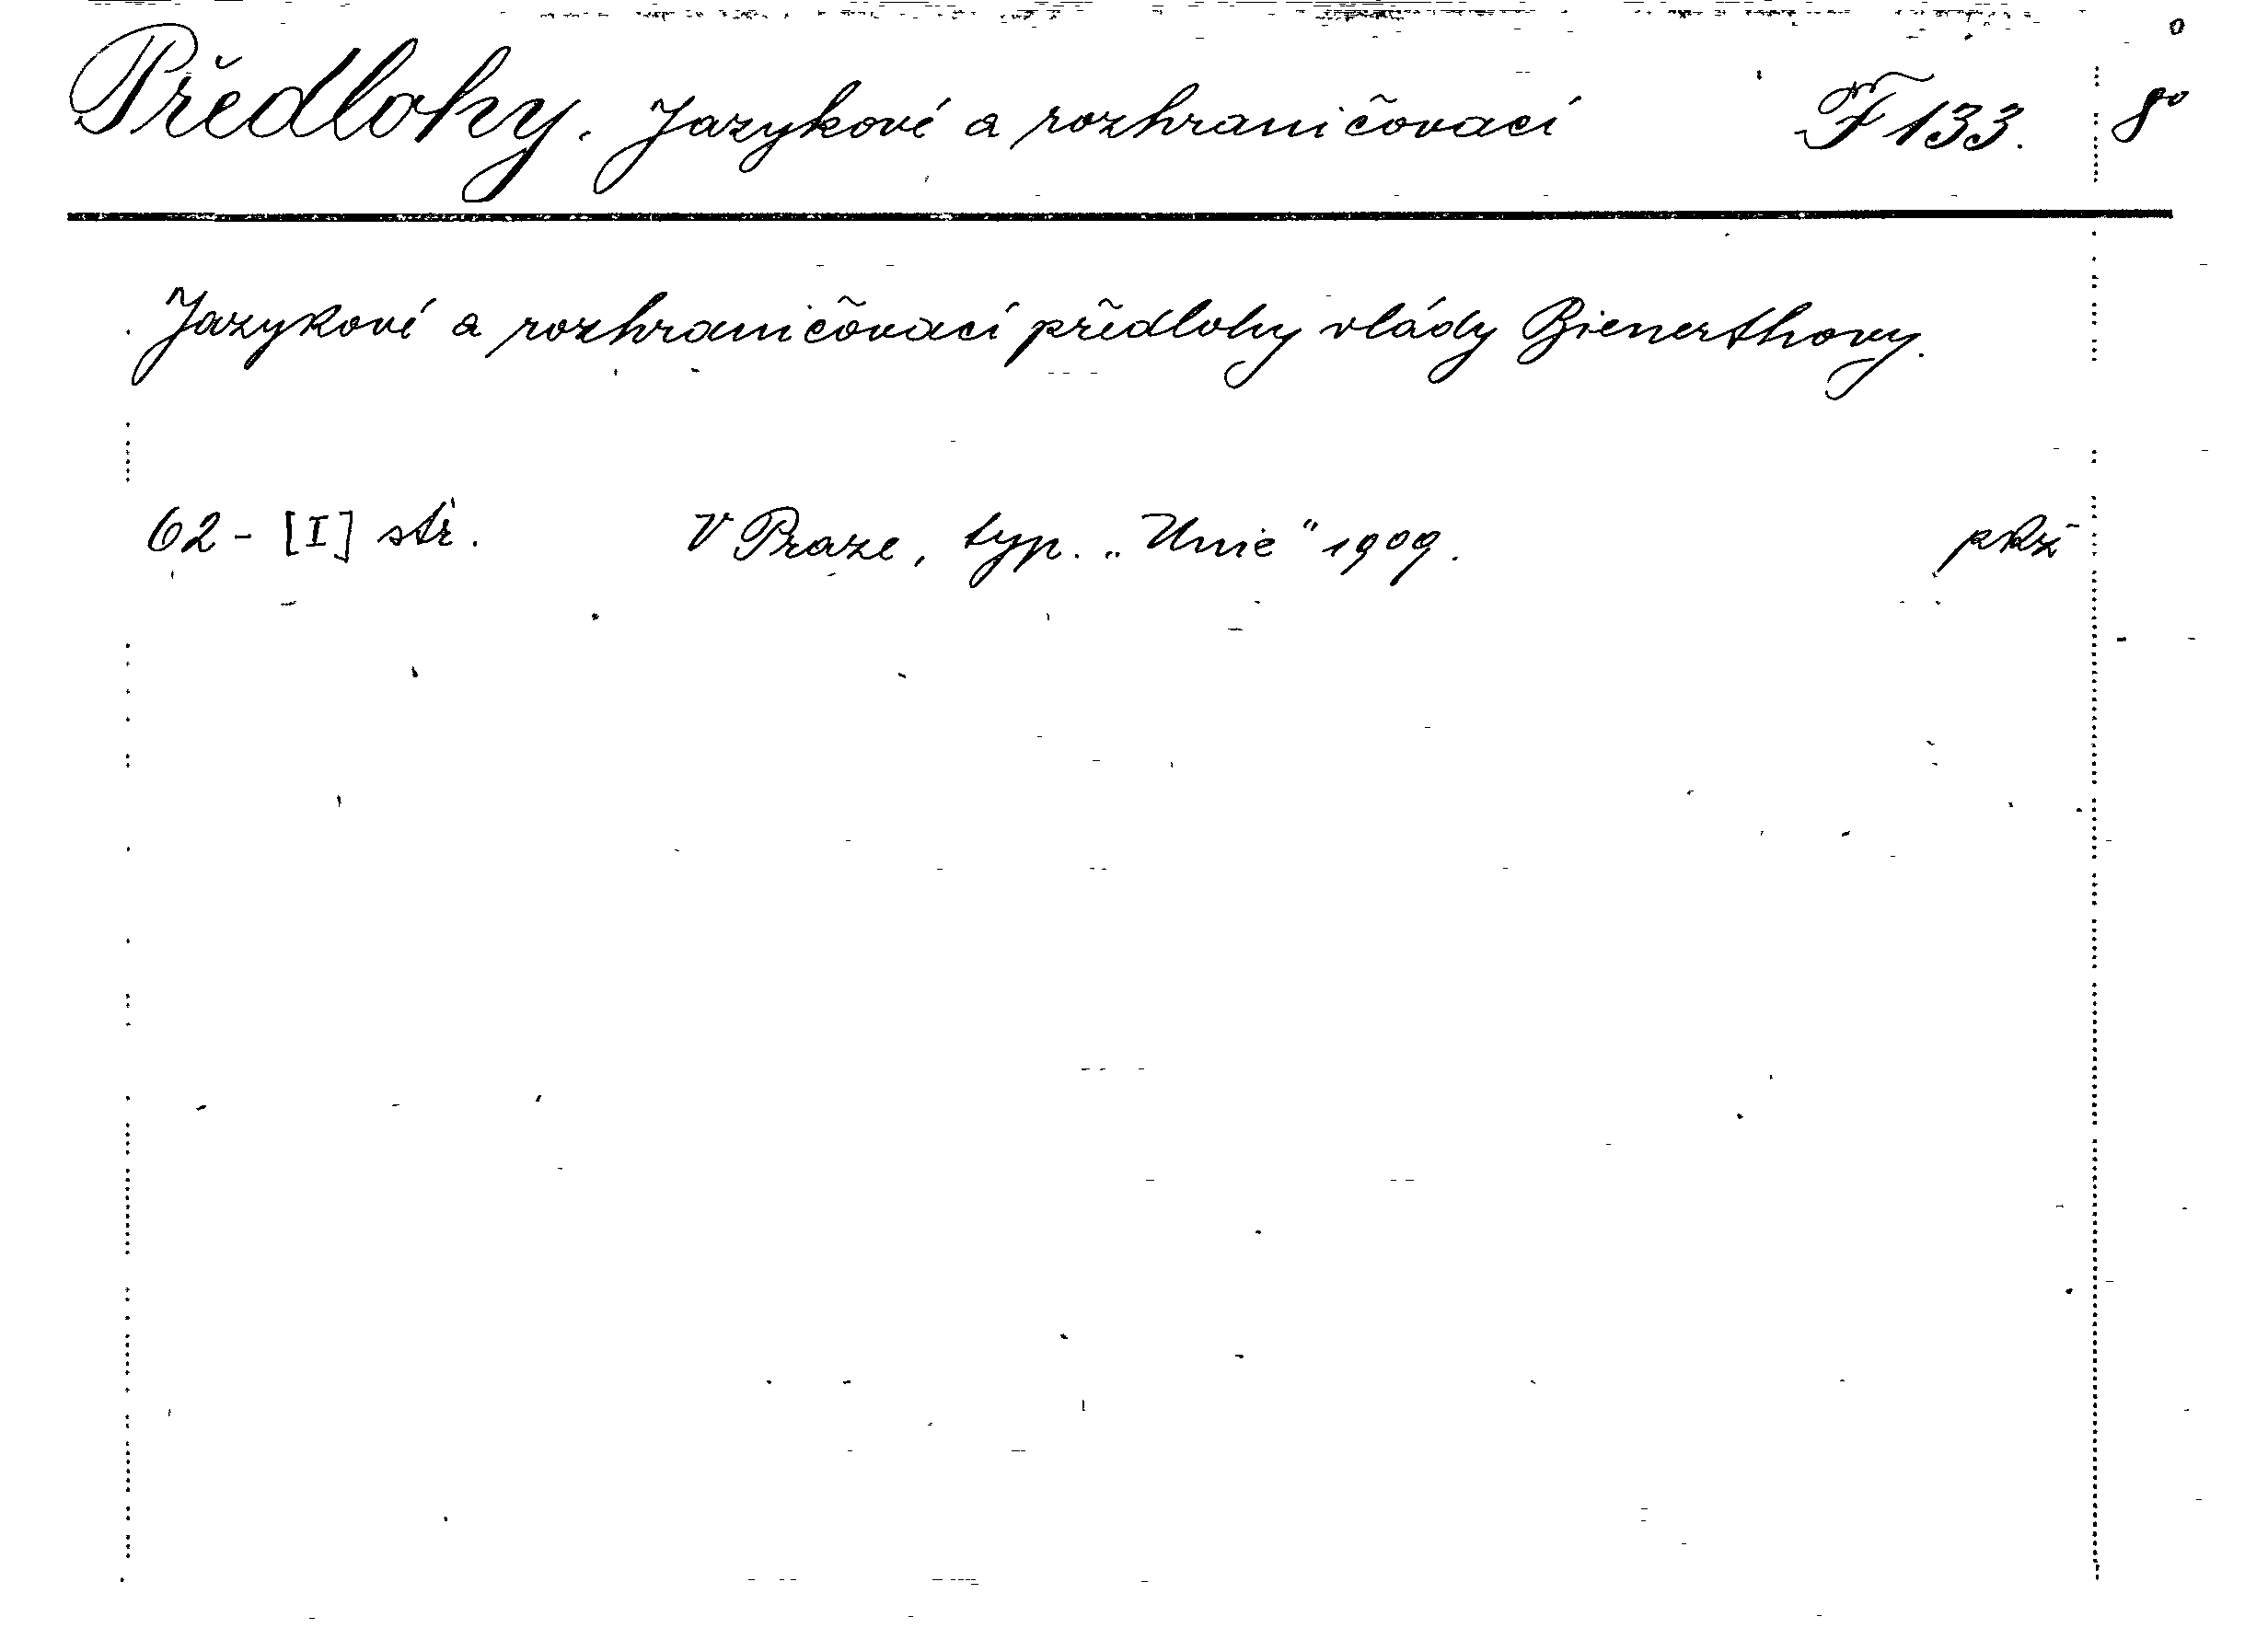 Předlohy. Jazykové a rozhraničovací F 133. 8°
Jazykové a rozhraničovací předlohy vlády Bienerthovy.
62 - [I] str. V Praze, typ. „Unie" 1909.